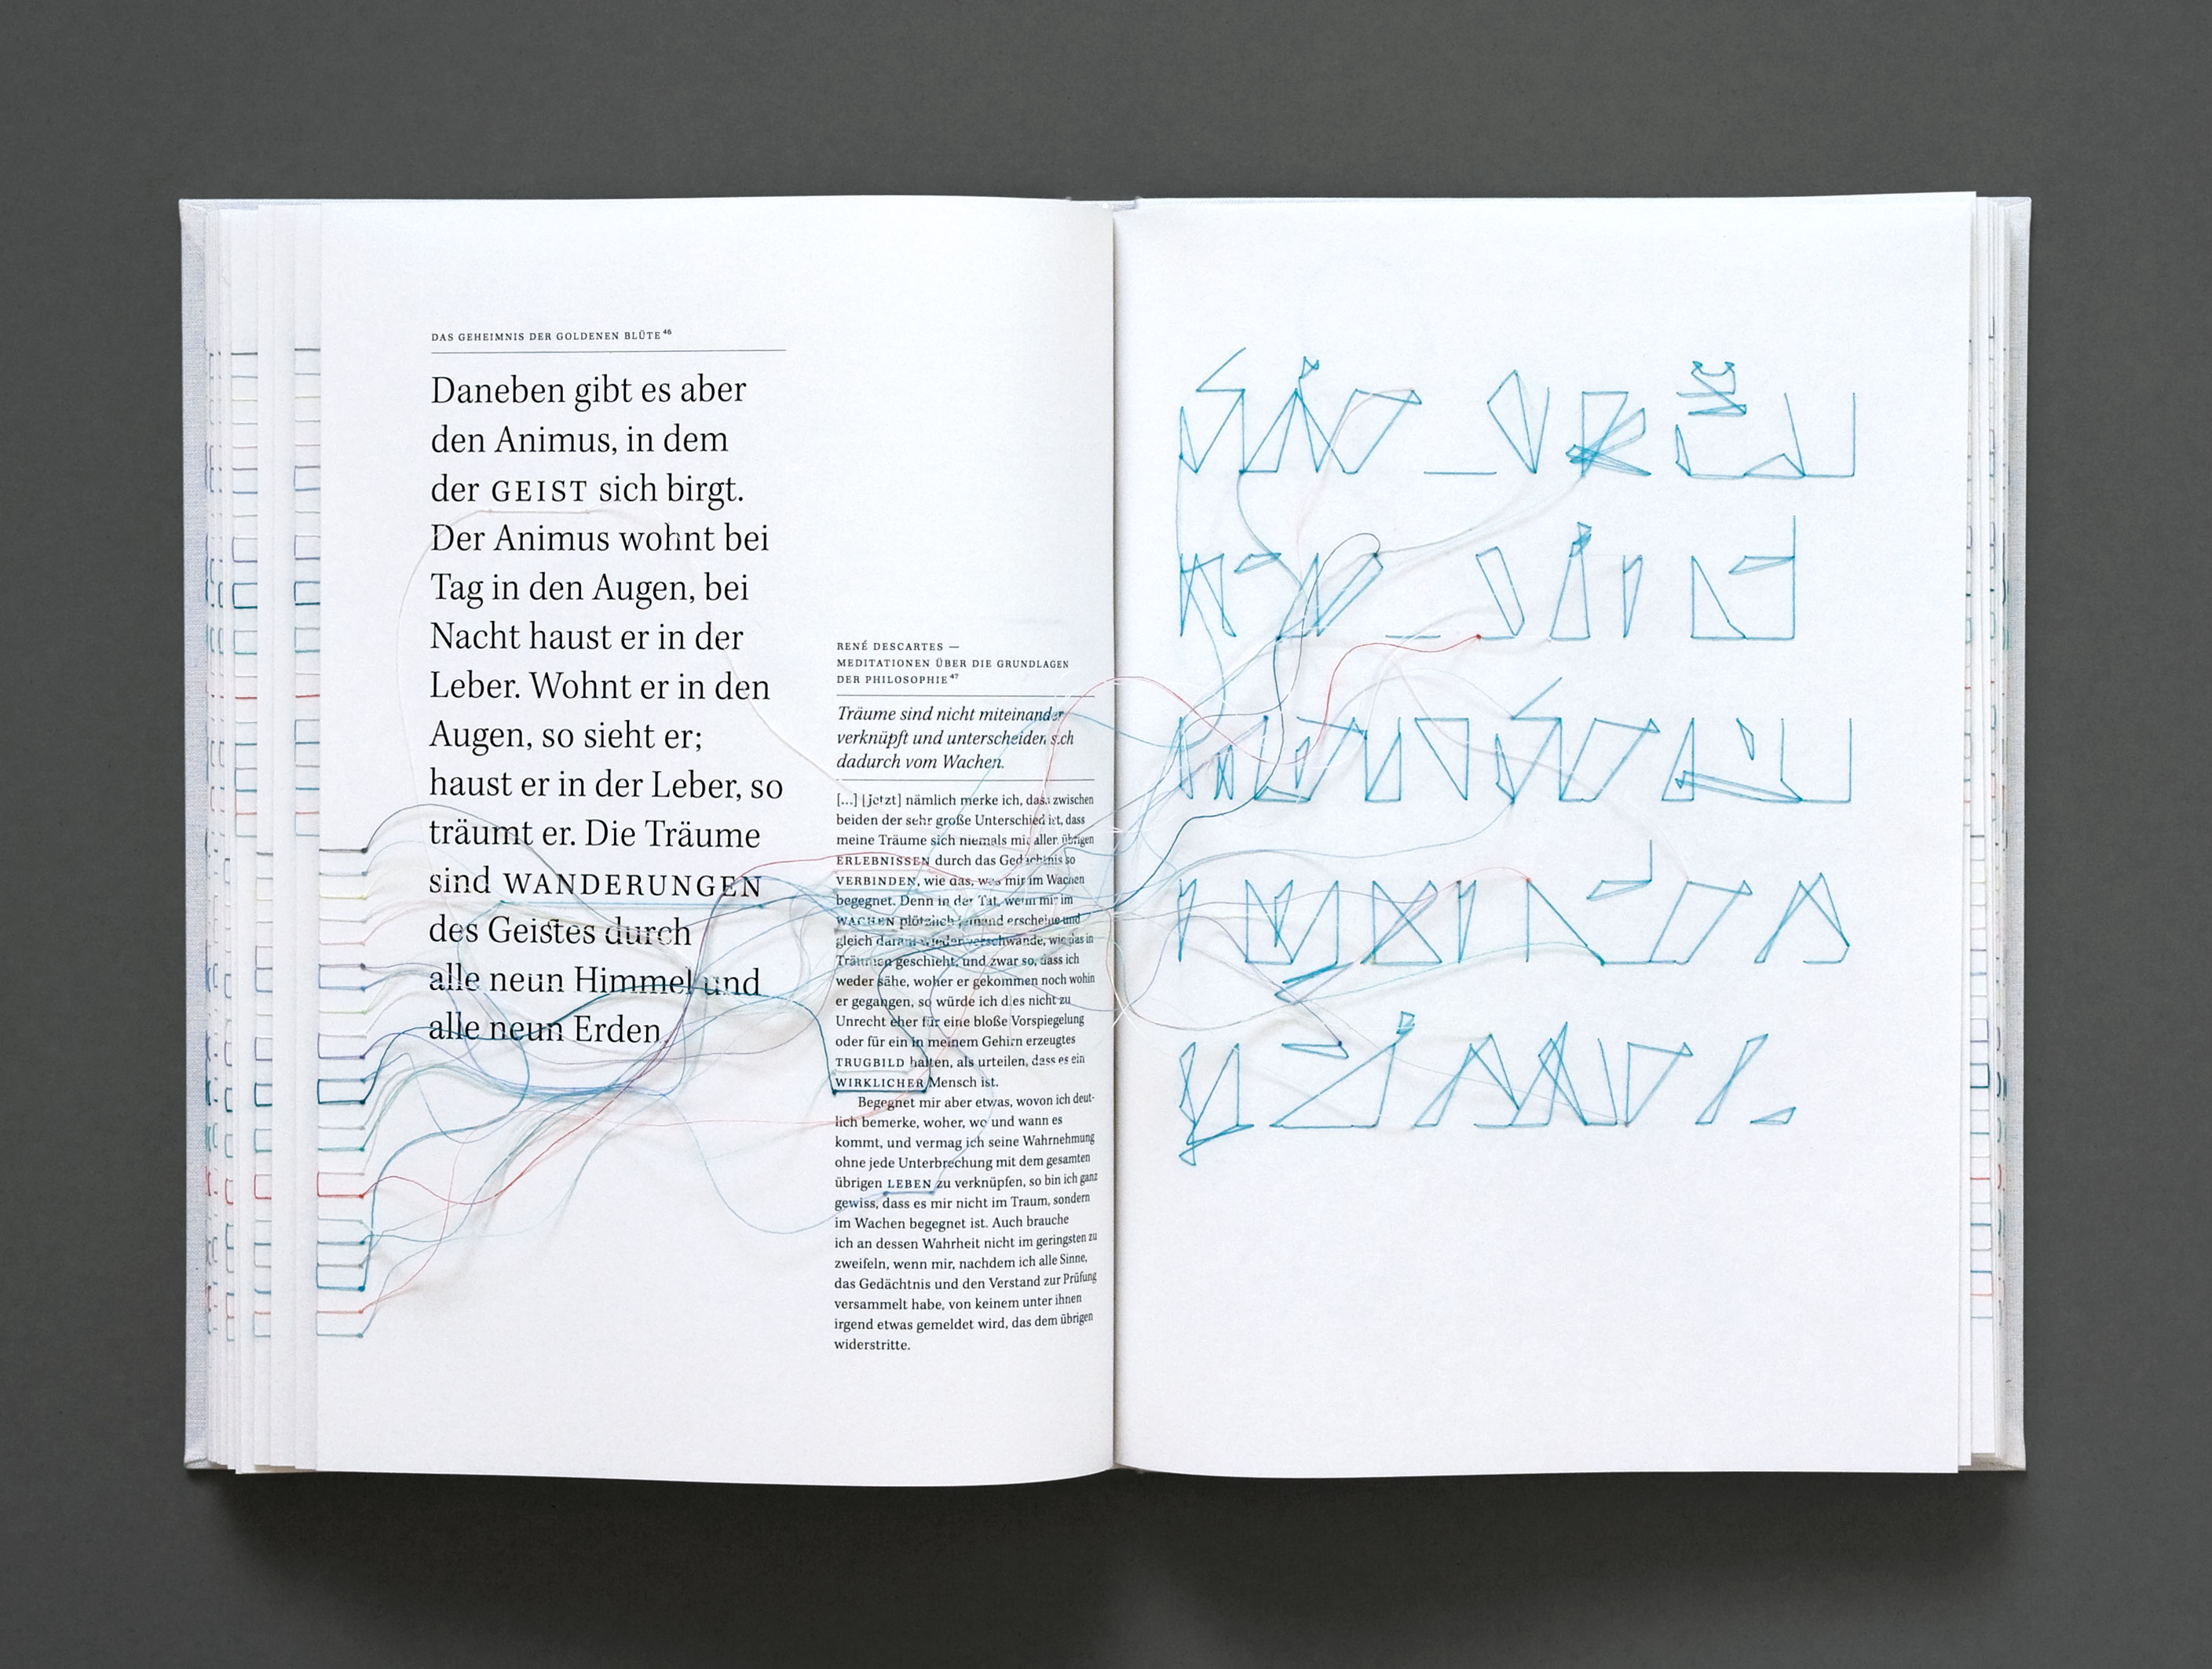 DAS GEHEIMNIS DER GOLDENEN BLÜTE⁴⁶
Daneben gibt es aber
den Animus, in dem
der GEIST sich birgt.
Der Animus wohnt bei
Tag in den Augen, bei
Nacht haust er in der
Leber. Wohnt er in den
Augen, so sieht er;
haust er in der Leber, so
träumt er. Die Träume
sind WANDERUNGEN
des Geistes durch
alle neun Himmel und
alle neun Erden.
RENÉ DESCARTES —
MEDITATIONEN ÜBER DIE GRUNDLAGEN
DER PHILOSOPHIE⁴⁷
Träume sind nicht miteinander
verknüpft und unterscheiden sich
dadurch vom Wachen.
[…] [jetzt] nämlich merke ich, dass zwischen
beiden der sehr große Unterschied ist, dass
meine Träume sich niemals mit allen übrigen
ERLEBNISSEN durch das Gedächtnis so
VERBINDEN, wie das, was mir im Wachen
begegnet. Denn in der Tat, wenn mir im
WACHEN plötzlich jemand erscheine und
gleich darauf wieder verschwände, wie das in
Träumen geschieht, und zwar so, dass ich
weder sähe, woher er gekommen noch wohin
er gegangen, so würde ich dies nicht zu
Unrecht eher für eine bloße Vorspiegelung
oder für ein in meinem Gehirn erzeugtes
TRUGBILD halten, als urteilen, dass es ein
WIRKLICHER Mensch ist.
Begegnet mir aber etwas, wovon ich deut-
lich bemerke, woher, wo und wann es
kommt, und vermag ich seine Wahrnehmung
ohne jede Unterbrechung mit dem gesamten
übrigen LEBEN zu verknüpfen, so bin ich ganz
gewiss, dass es mir nicht im Traum, sondern
im Wachen begegnet ist. Auch brauche
ich an dessen Wahrheit nicht im geringsten zu
zweifeln, wenn mir, nachdem ich alle Sinne,
das Gedächtnis und den Verstand zur Prüfung
versammelt habe, von keinem unter ihnen
irgend etwas gemeldet wird, das dem übrigen
widerstritte.